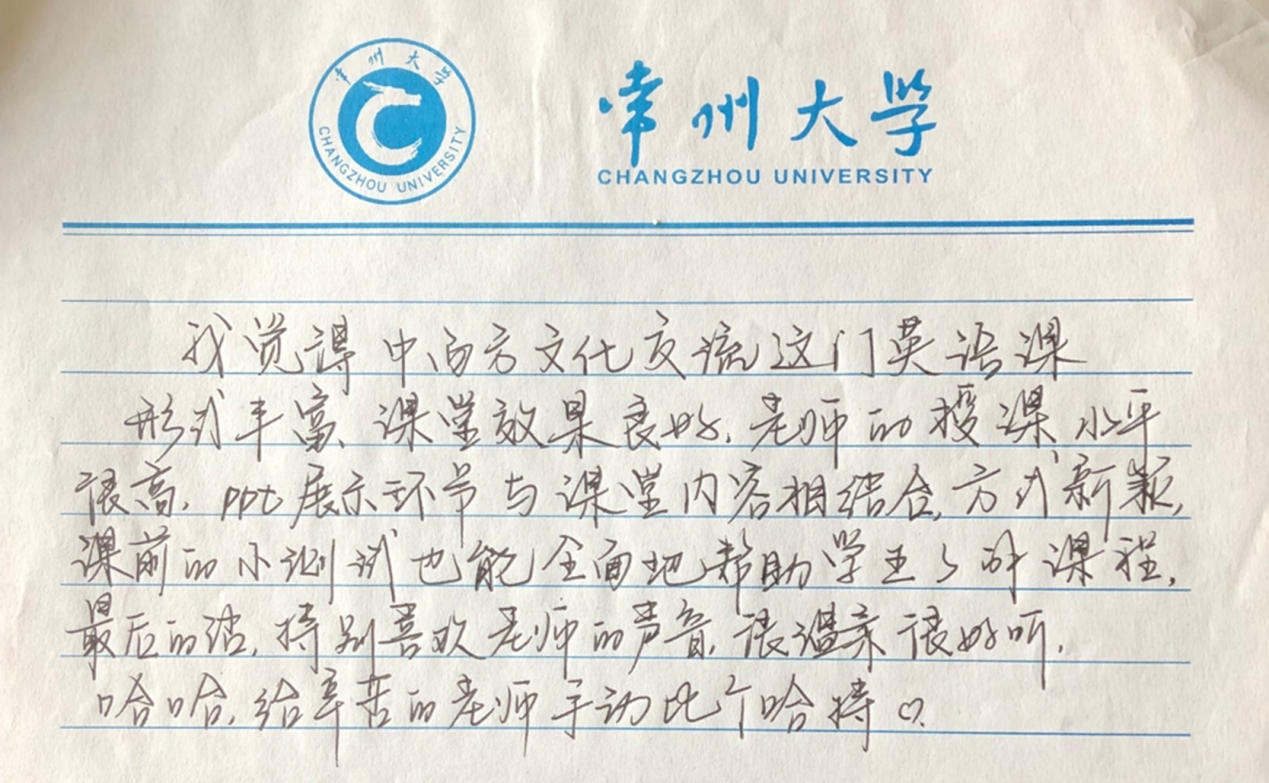 常州大学
CHANGZHOU UNIVERSITY
常州大学
CHANGZHOU UNIVERSITY
我觉得中西方文化交流这门英语课
形式丰富、课堂效果良好,老师的授课水平
很高,ppt展示环节与课堂内容相结合,方式新颖,
课前的小测试也能全面地帮助学生了解课程,
最后的话,特别喜欢老师的声音,很温柔很好听,
哈哈,给辛苦的老师手动比个哈特♡.